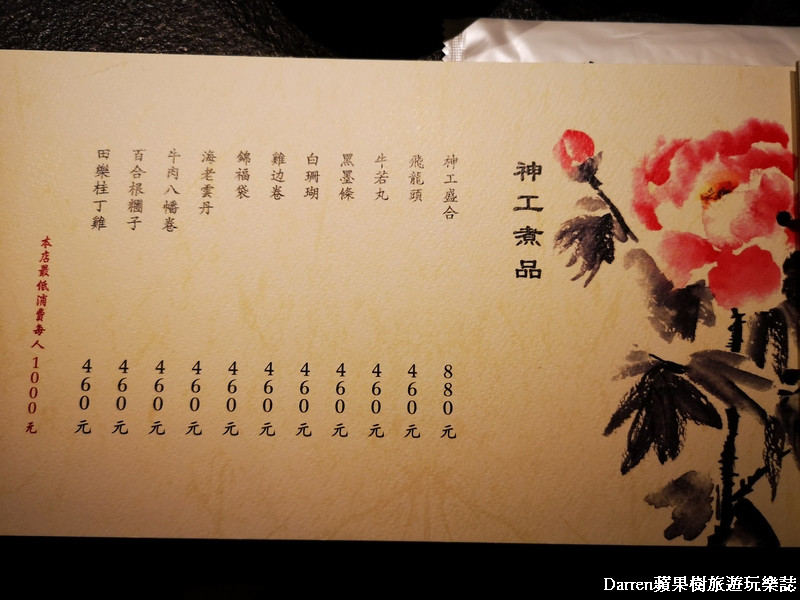 神工煮品
神工盛合 880元
飛龍頭 460元
牛若丸 460元
黑墨條 460元
白珊瑚 460元
雞边卷 460元
錦福袋 460元
海老雲丹 460元
牛肉八幡卷 460元
百合根糰子 460元
田樂桂丁雞 460元
本店最低消費每人1000元
Darren蘋果樹旅遊玩樂誌